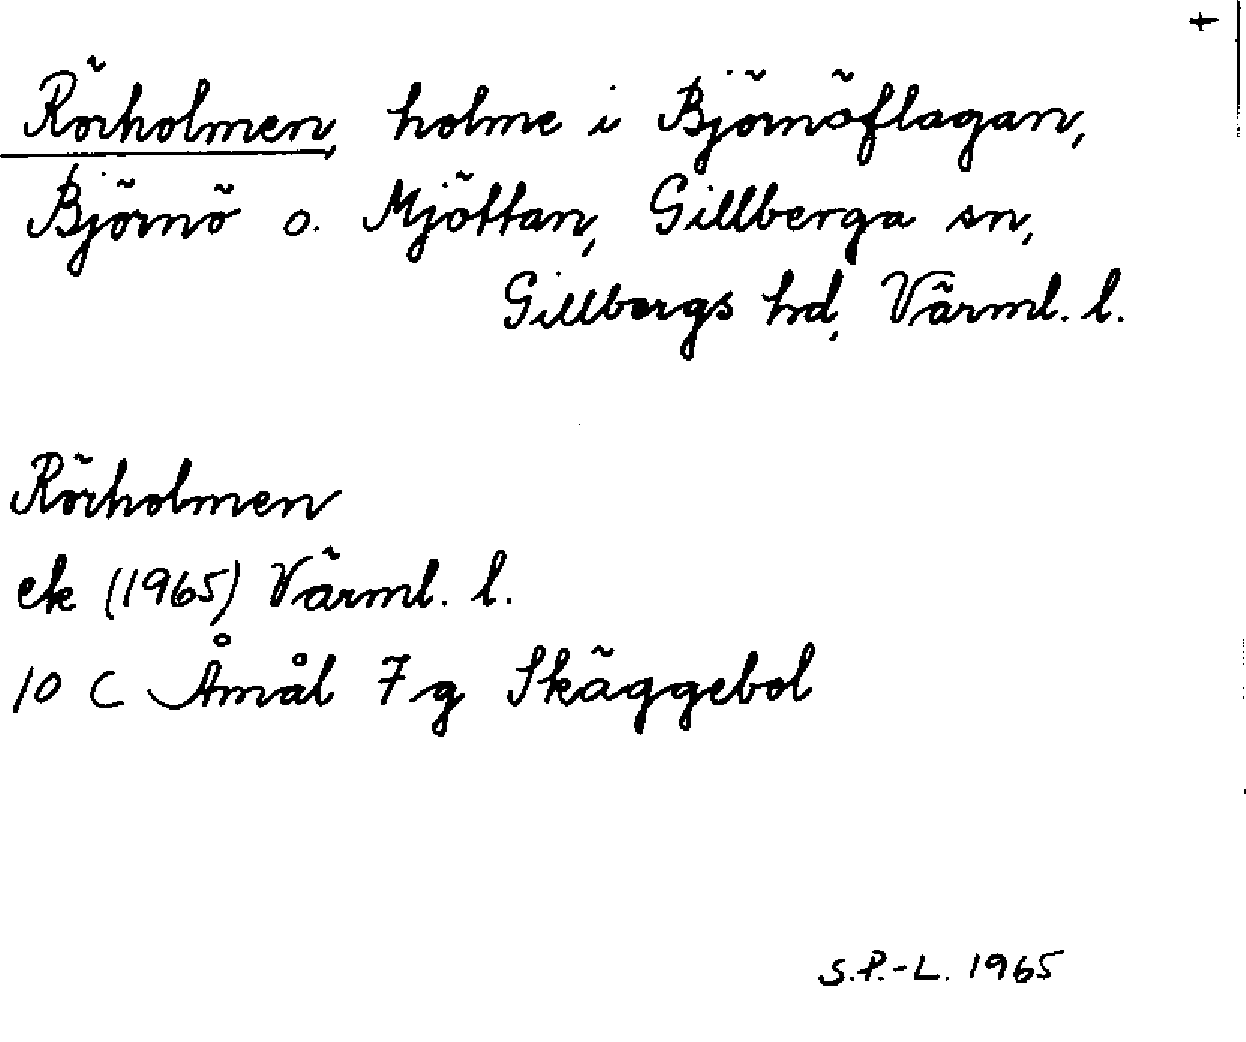 Rörholmen, holme i Björnöflagan,
Björnö o. Mjöttan, Gillberga sn,
Gillbergs hd, Värml. l.
Rörholmen
ek (1965) Värml. l.
10 C Åmål 7 g Skäggebol
S.P.-L. 1965